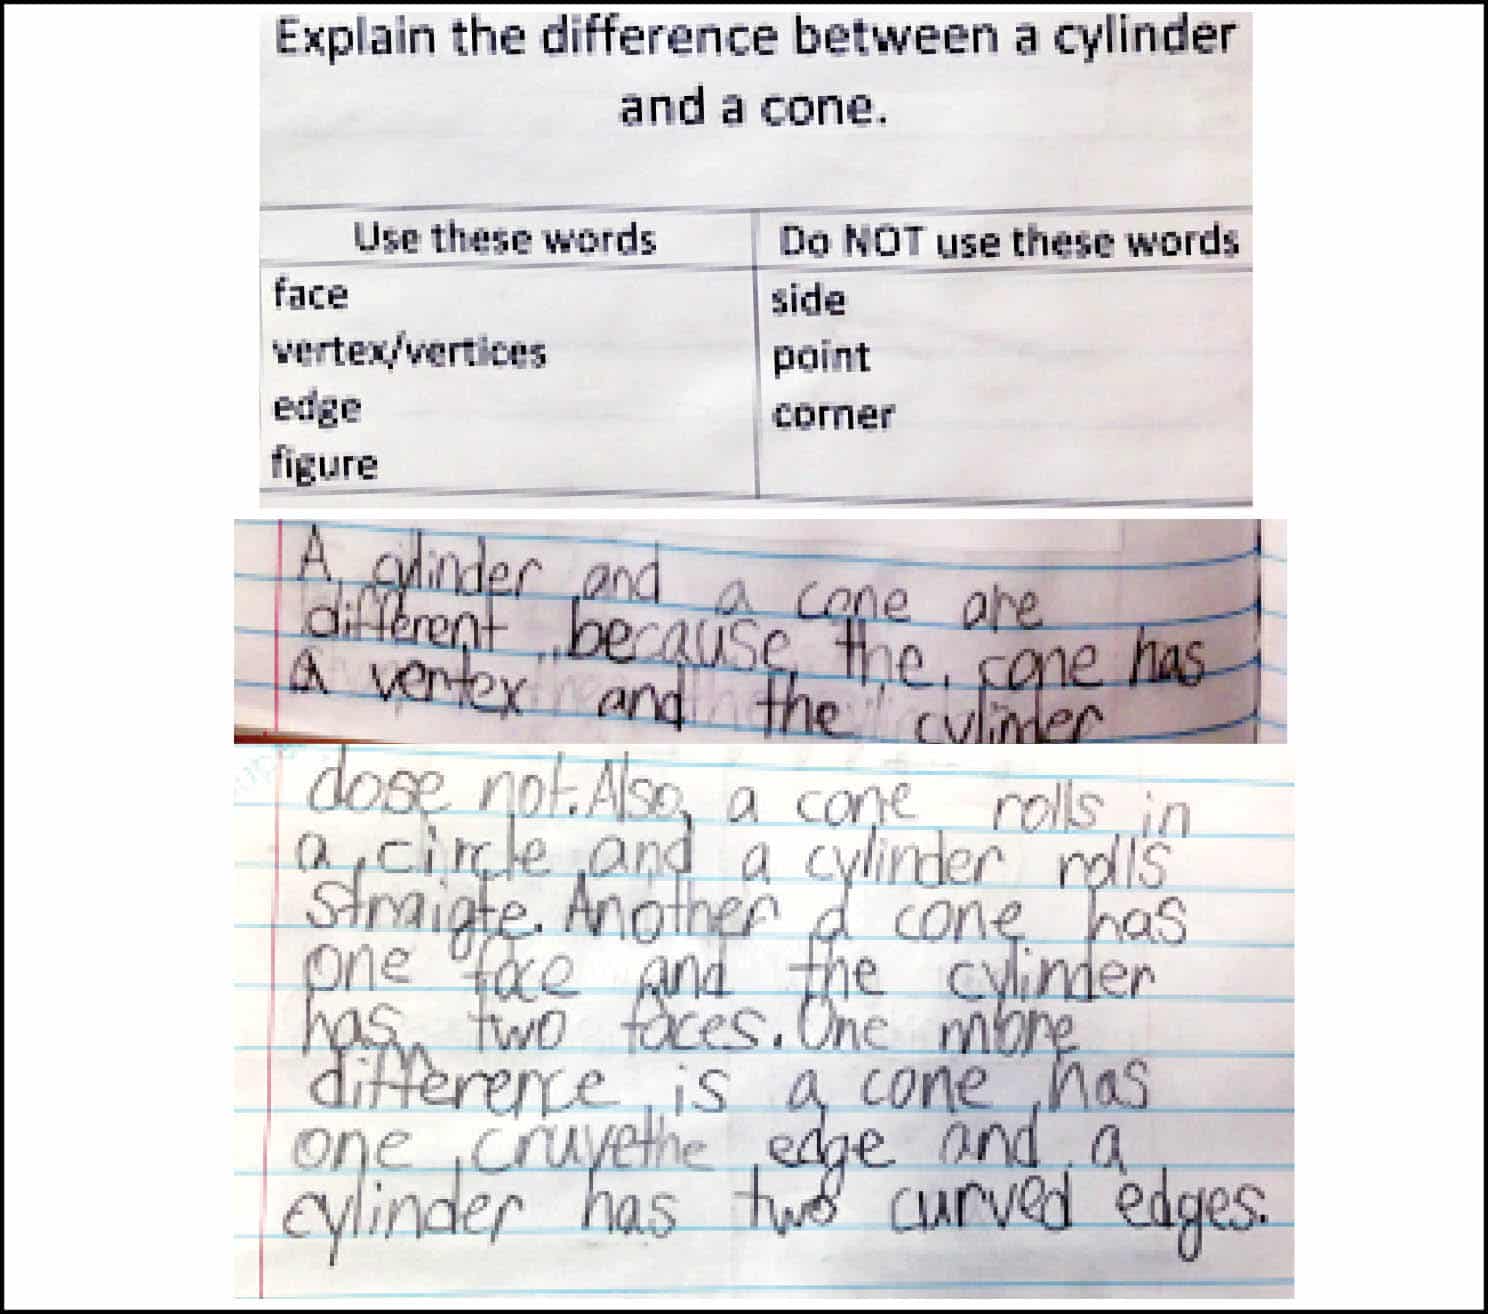 Explain the difference between a cylinder
and a cone.
Use these words Do NOT use these words
face side
vertex/vertices point
edge corner
figure
A cylinder and a cone are
different because the cone has
a vertex and the cylinder
dose not. Also, a cone rolls in
a circle and a cylinder rolls
straigte. Another a cone has
one face and the cylinder
has two faces. One more
difference is a cone has
one cruvethe edge and a
cylinder has two curved edges.